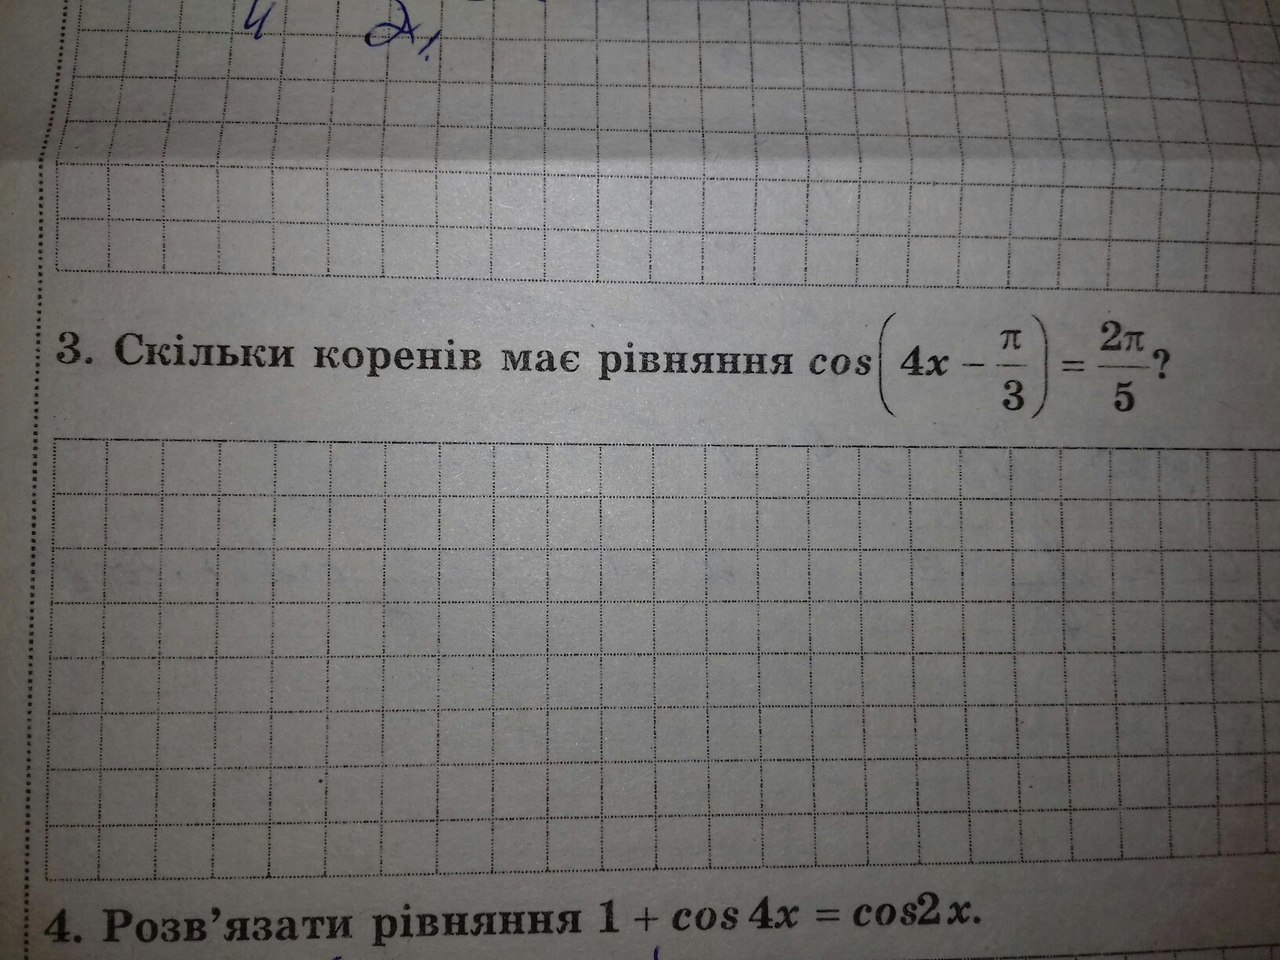 3. Скільки коренів має рівняння cos(4x − π/3) = 2π/5?
4. Розв’язати рівняння 1 + cos 4x = cos2x.